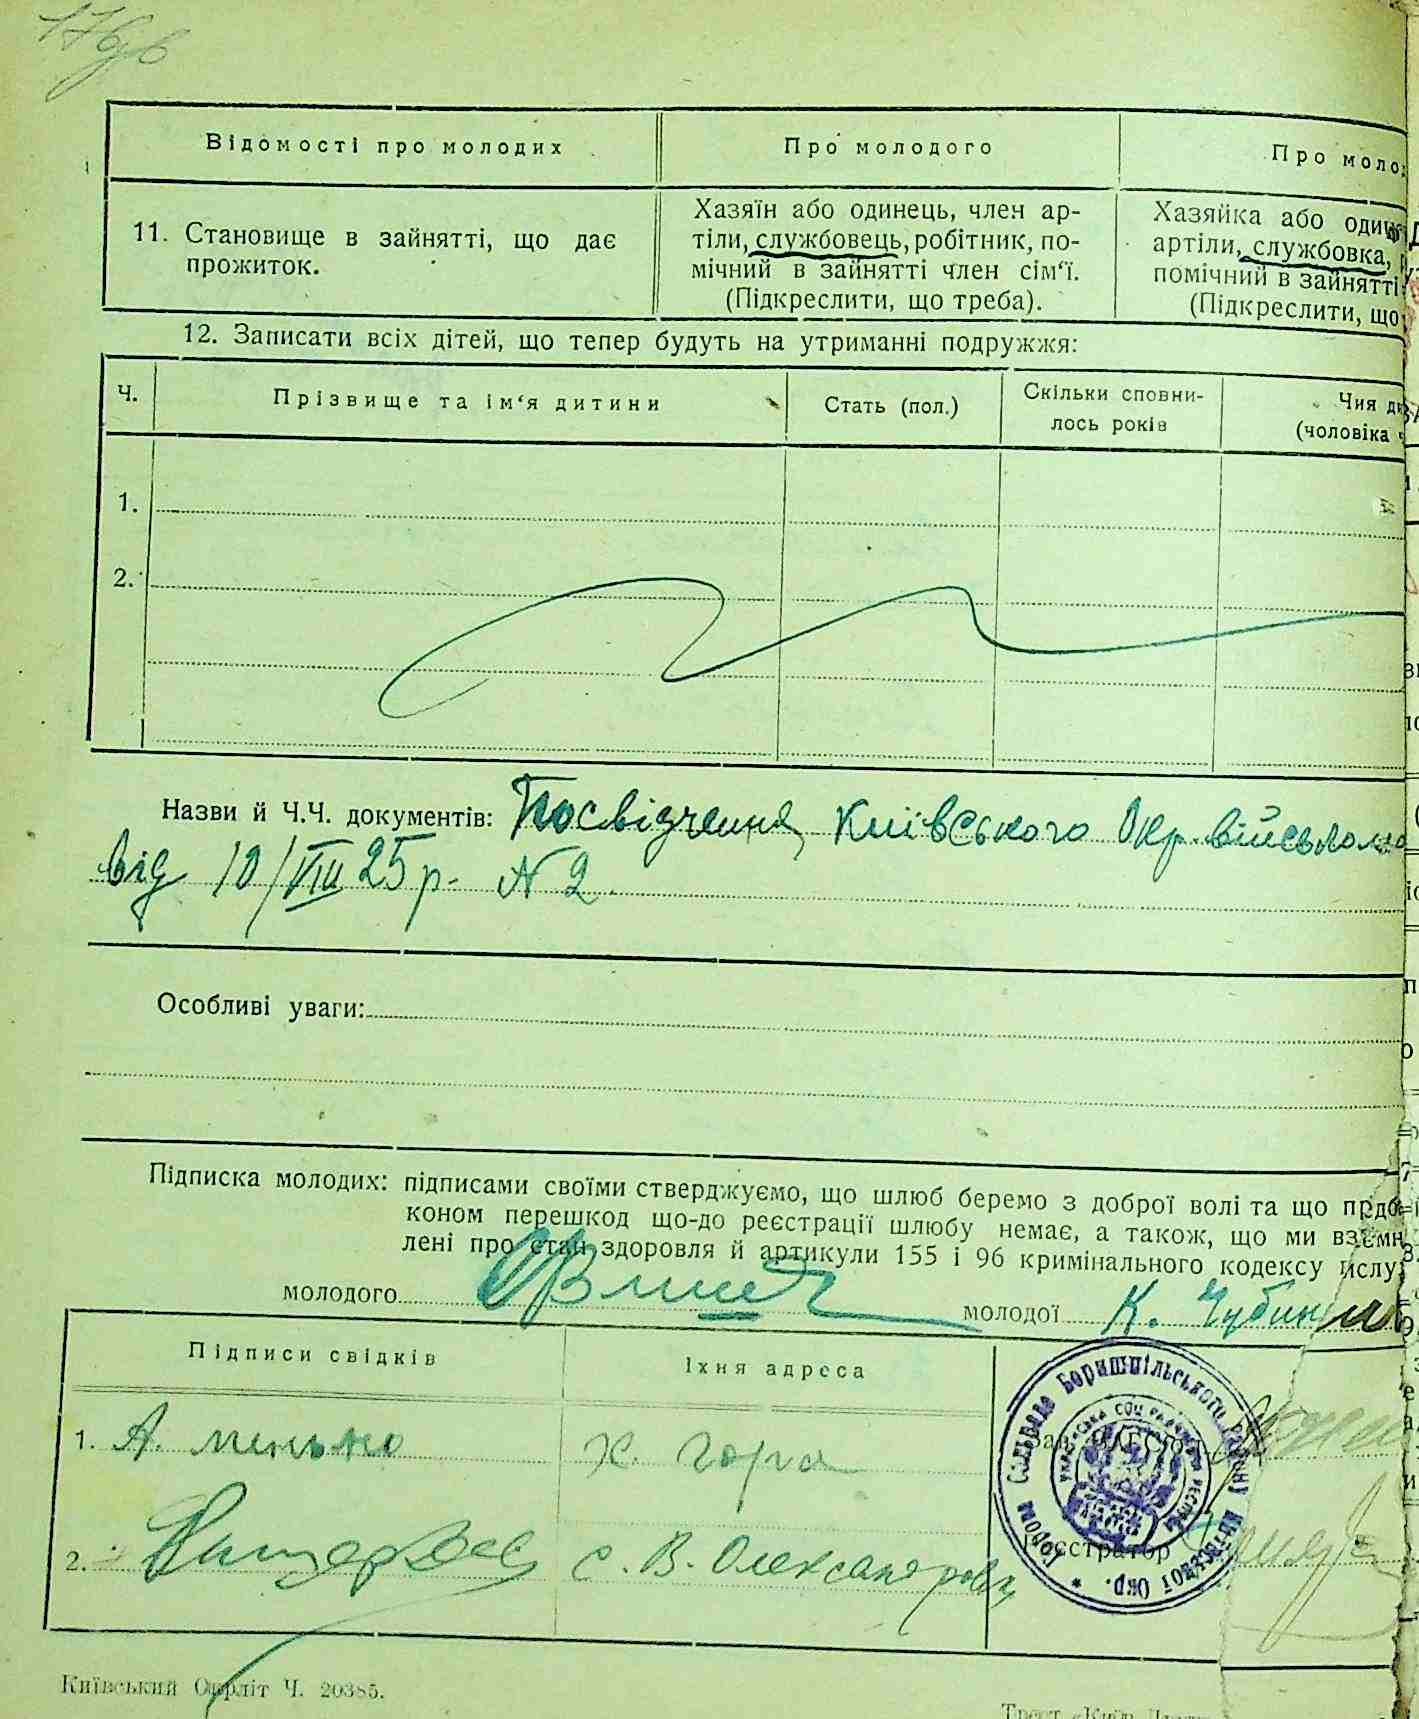 176
Відомості про молодих
Про молодого
Про моло
11. Становище в зайнятті, що дає прожиток.
Хазяїн або одинець, член ар-
тіли, службовець, робітник, по-
мічний в зайнятті член сім'ї.
(Підкреслити, що треба).
Хазяйка або один
артіли, службовка,
помічний в зайнятті
(Підкреслити, що
12. Записати всіх дітей, що тепер будуть на утриманні подружжя:
Ч.
Прізвище та ім'я дитини
Стать (пол.)
Скільки сповни-
лось років
Чия
(чоловіка
1.
2.
Назви й Ч.Ч. документів: Посвідчення Київського Окр.
від 10/VIII 25 р. № 2
Особливі уваги:
Підписка молодих: підписами своїми стверджуємо, що шлюб беремо з доброї волі та що
коном перешкод що-до реєстрації шлюбу немає, а також, що ми
лені про стан здоровля й артикули 155 і 96 кримінального кодексу
молодого
молодої К.
Підписи свідків
Їхня адреса
1. А.
х. гора
2.
с. В. Олександровка
Бориспільського району Київської Окр.
реєстратор
Київський Окрліт Ч. 20385.